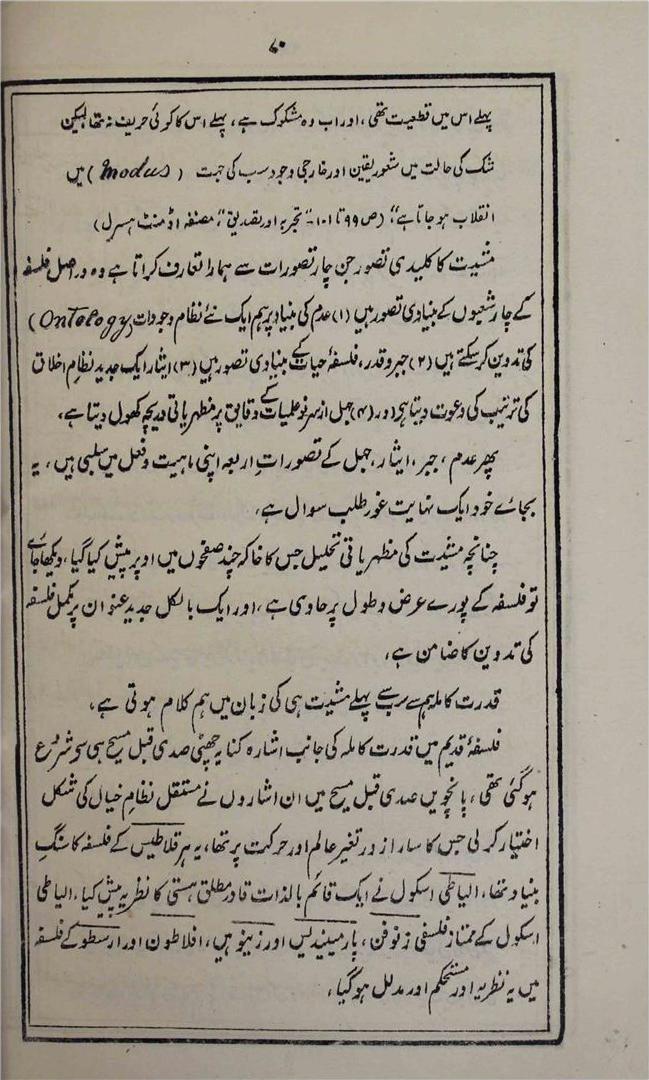 ۷۰
پہلے اس میں قطعیت تھی، اور اب وہ مشکوک ہے، پہلے اس کا کوئی حریف نہ تھا لیکن
شک کی حالت میں شعور یقین اور خارجی وجود سب کی جہت (modus) میں
انقلاب ہو جاتا ہے"، (ص ۹۹ تا ۱۰۱۔ "تجربہ اور تصدیق"، مصنفہ اڈمنٹ ہسرل)
مشیت کا کلیدی تصور جن چار تصورات سے ہمارا تعارف کراتا ہے وہ دراصل فلسفہ
کے چار شعبوں کے بنیادی تصور ہیں (۱) عدم کی بنیاد پر ہم ایک نئے نظام وجودات (Ontology)
کی تدوین کر سکتے ہیں (۲) جبر و قدر، فلسفۂ حیات کے بنیادی تصور ہیں (۳) ایثار ایک جدید نظامِ اخلاق
کی ترتیب کی دعوت دیتا ہے اور (۴) جہل از سر نو علمیات کے دقایق پر مظہریاتی دریچہ کھول دیتا ہے۔
پھر عدم، جبر، ایثار، جہل کے تصوراتِ اربعہ اپنی ماہیت و فعل میں سلبی ہیں، یہ
بجائے خود ایک نہایت غور طلب سوال ہے،
چنانچہ مشیت کی مظہریاتی تحلیل جس کا خاکہ چند صفحوں میں اوپر پیش کیا گیا، دیکھا جائے
تو فلسفہ کے پورے عرض و طول پر حاوی ہے، اور ایک بالکل جدید عنوان پر مکمل فلسفہ
کی تدوین کا ضامن ہے،
قدرت کاملہ ہم سے سب سے پہلے مشیت ہی کی زبان میں ہم کلام ہوتی ہے،
فلسفۂ قدیم میں قدرت کاملہ کی جانب اشارہ کنایہ چھٹی صدی قبل مسیح ہی سے شروع
ہو گئی تھی، پانچویں صدی قبل مسیح میں ان اشاروں نے مستقل نظامِ خیال کی شکل
اختیار کر لی جس کا سارا زور تغیر عالم اور حرکت پر تھا، یہ ہرقلاطیس کے فلسفہ کا سنگِ
بنیاد تھا، الیاطی اسکول نے ایک قائم بالذات قادر مطلق ہستی کا نظریہ پیش کیا، الیاطی
اسکول کے ممتاز فلسفی زنوفن، پارمینیدیس اور زینو ہیں، افلاطون اور ارسطو کے فلسفہ
میں یہ نظریہ اور مستحکم اور مدلل ہو گیا،